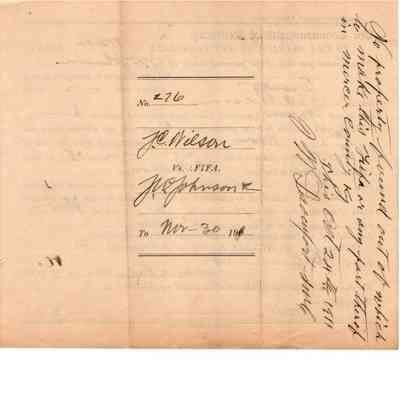 No. 276
J. C. Wilson
Vs. FIFA.
J. C. Johnson &c
To Nov-30 191
No property found out of which
to make this Fifa or any part therof
in Mercer County Ky
This Oct 24th 1911